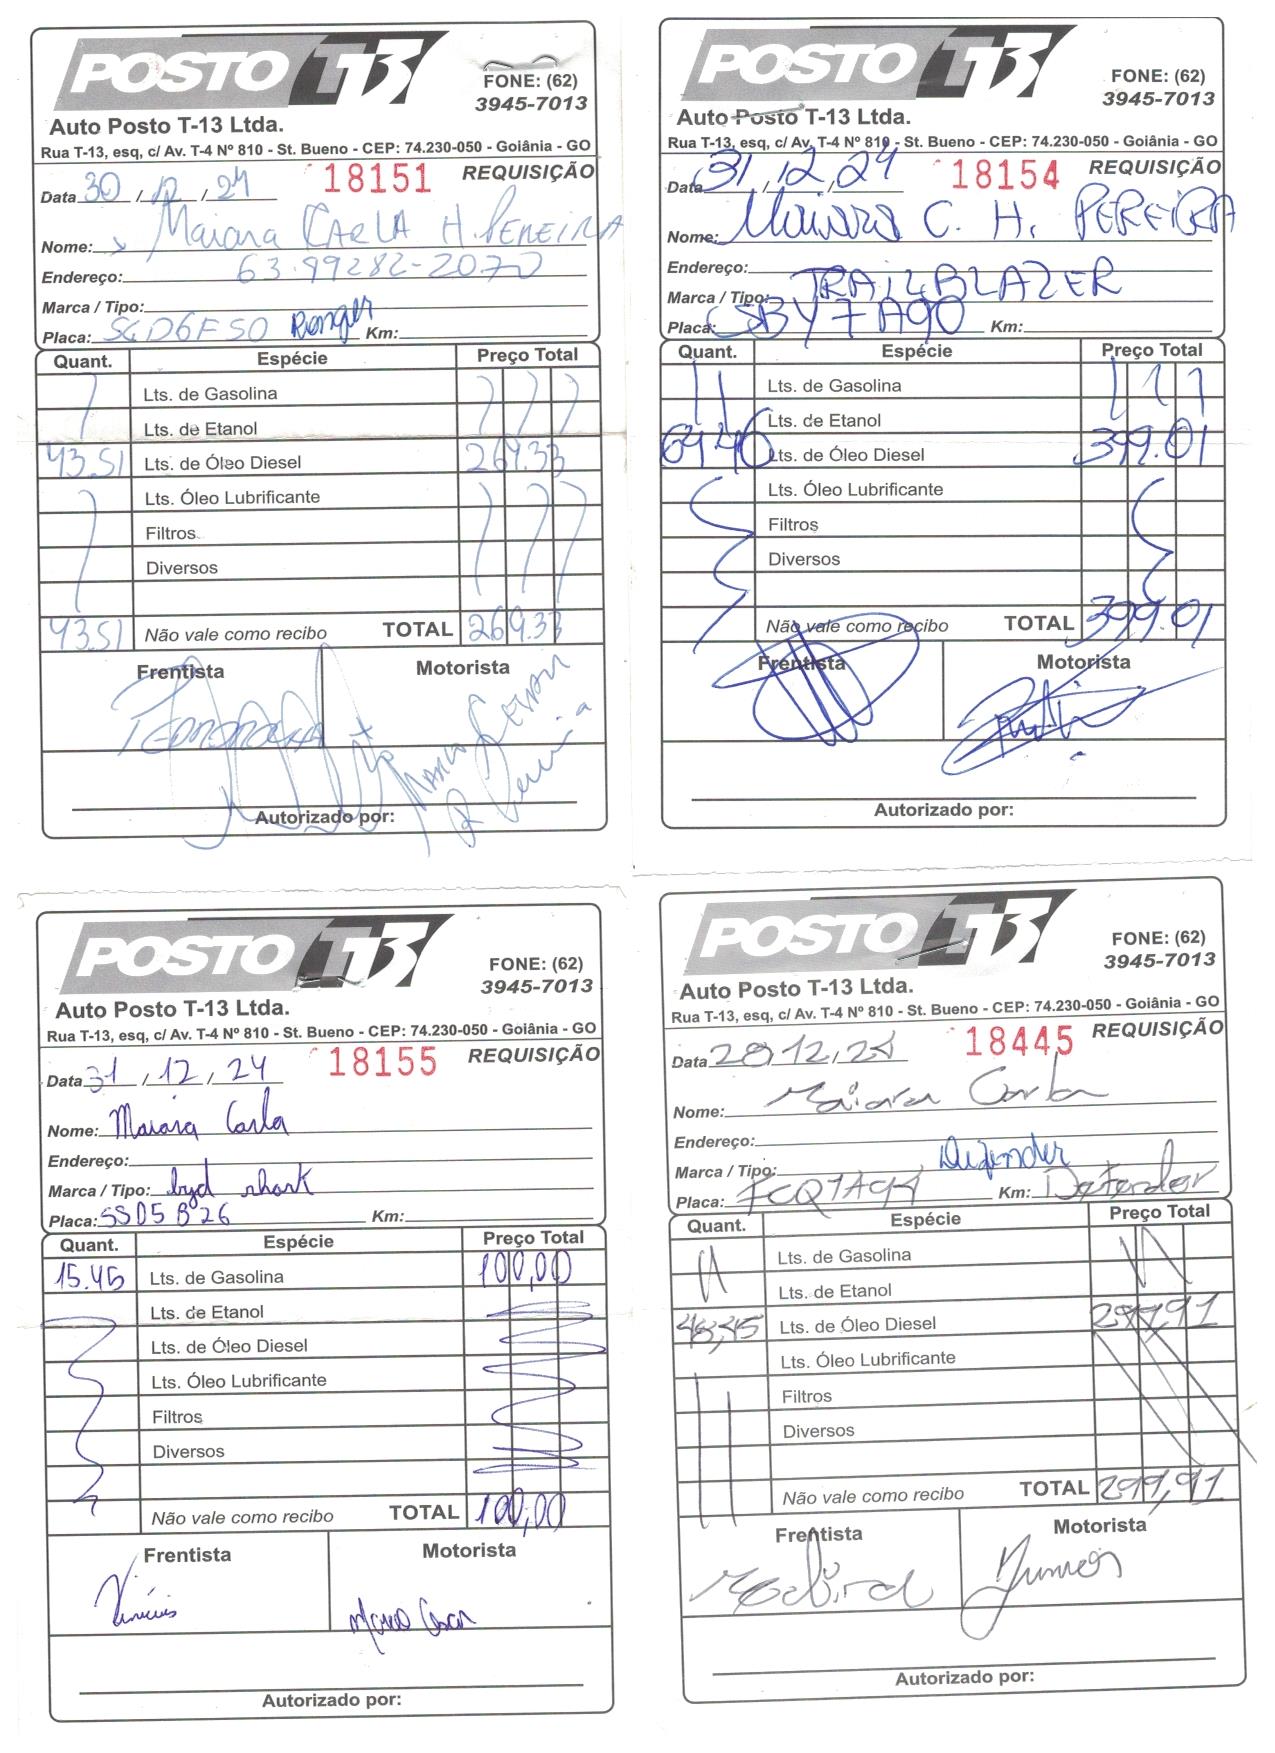 POSTO T-13
FONE: (62)
3945-7013
Auto Posto T-13 Ltda.
Rua T-13, esq, c/ Av. T-4 Nº 810 - St. Bueno - CEP: 74.230-050 - Goiânia - GO
REQUISIÇÃO
Data 30 / 12 / 24 18151
Nome: Maiara CARLA H. PEREIRA
Endereço: 63.99282-2070
Marca / Tipo:
Placa: SGD6F50 Ranger Km:
Quant. Espécie Preço Total
Lts. de Gasolina
Lts. de Etanol
43.51 Lts. de Óleo Diesel 269.33
Lts. Óleo Lubrificante
Filtros
Diversos
43.51 Não vale como recibo TOTAL 269.33
Frentista Motorista
Marco Cesar
Autorizado por:
POSTO T-13
FONE: (62)
3945-7013
Auto Posto T-13 Ltda.
Rua T-13, esq, c/ Av. T-4 Nº 810 - St. Bueno - CEP: 74.230-050 - Goiânia - GO
REQUISIÇÃO
Data 31, 12, 24 18154
Nome: Maiara C. H. PEREIRA
Endereço:
Marca / Tipo: TRAILBLAZER
Placa: SBY7A90 Km:
Quant. Espécie Preço Total
Lts. de Gasolina
Lts. de Etanol
64.46 Lts. de Óleo Diesel 399.01
Lts. Óleo Lubrificante
Filtros
Diversos
Não vale como recibo TOTAL 399.01
Frentista Motorista
Autorizado por:
POSTO T-13
FONE: (62)
3945-7013
Auto Posto T-13 Ltda.
Rua T-13, esq, c/ Av. T-4 Nº 810 - St. Bueno - CEP: 74.230-050 - Goiânia - GO
REQUISIÇÃO
Data 31 / 12 / 24 18155
Nome: Maiara Carla
Endereço:
Marca / Tipo: byd shark
Placa: SSD5B26 Km:
Quant. Espécie Preço Total
15.45 Lts. de Gasolina 100,00
Lts. de Etanol
Lts. de Óleo Diesel
Lts. Óleo Lubrificante
Filtros
Diversos
Não vale como recibo TOTAL 100,00
Frentista Motorista
Vinicius Marco Cesar
Autorizado por:
POSTO T-13
FONE: (62)
3945-7013
Auto Posto T-13 Ltda.
Rua T-13, esq, c/ Av. T-4 Nº 810 - St. Bueno - CEP: 74.230-050 - Goiânia - GO
REQUISIÇÃO
Data 28, 12, 24 18445
Nome: Maiara Carla
Endereço:
Marca / Tipo: Defender
Placa: FCQ7A94 Km: Defender
Quant. Espécie Preço Total
Lts. de Gasolina
Lts. de Etanol
48,45 Lts. de Óleo Diesel 299,91
Lts. Óleo Lubrificante
Filtros
Diversos
Não vale como recibo TOTAL 299,91
Frentista Motorista
Junior
Autorizado por: